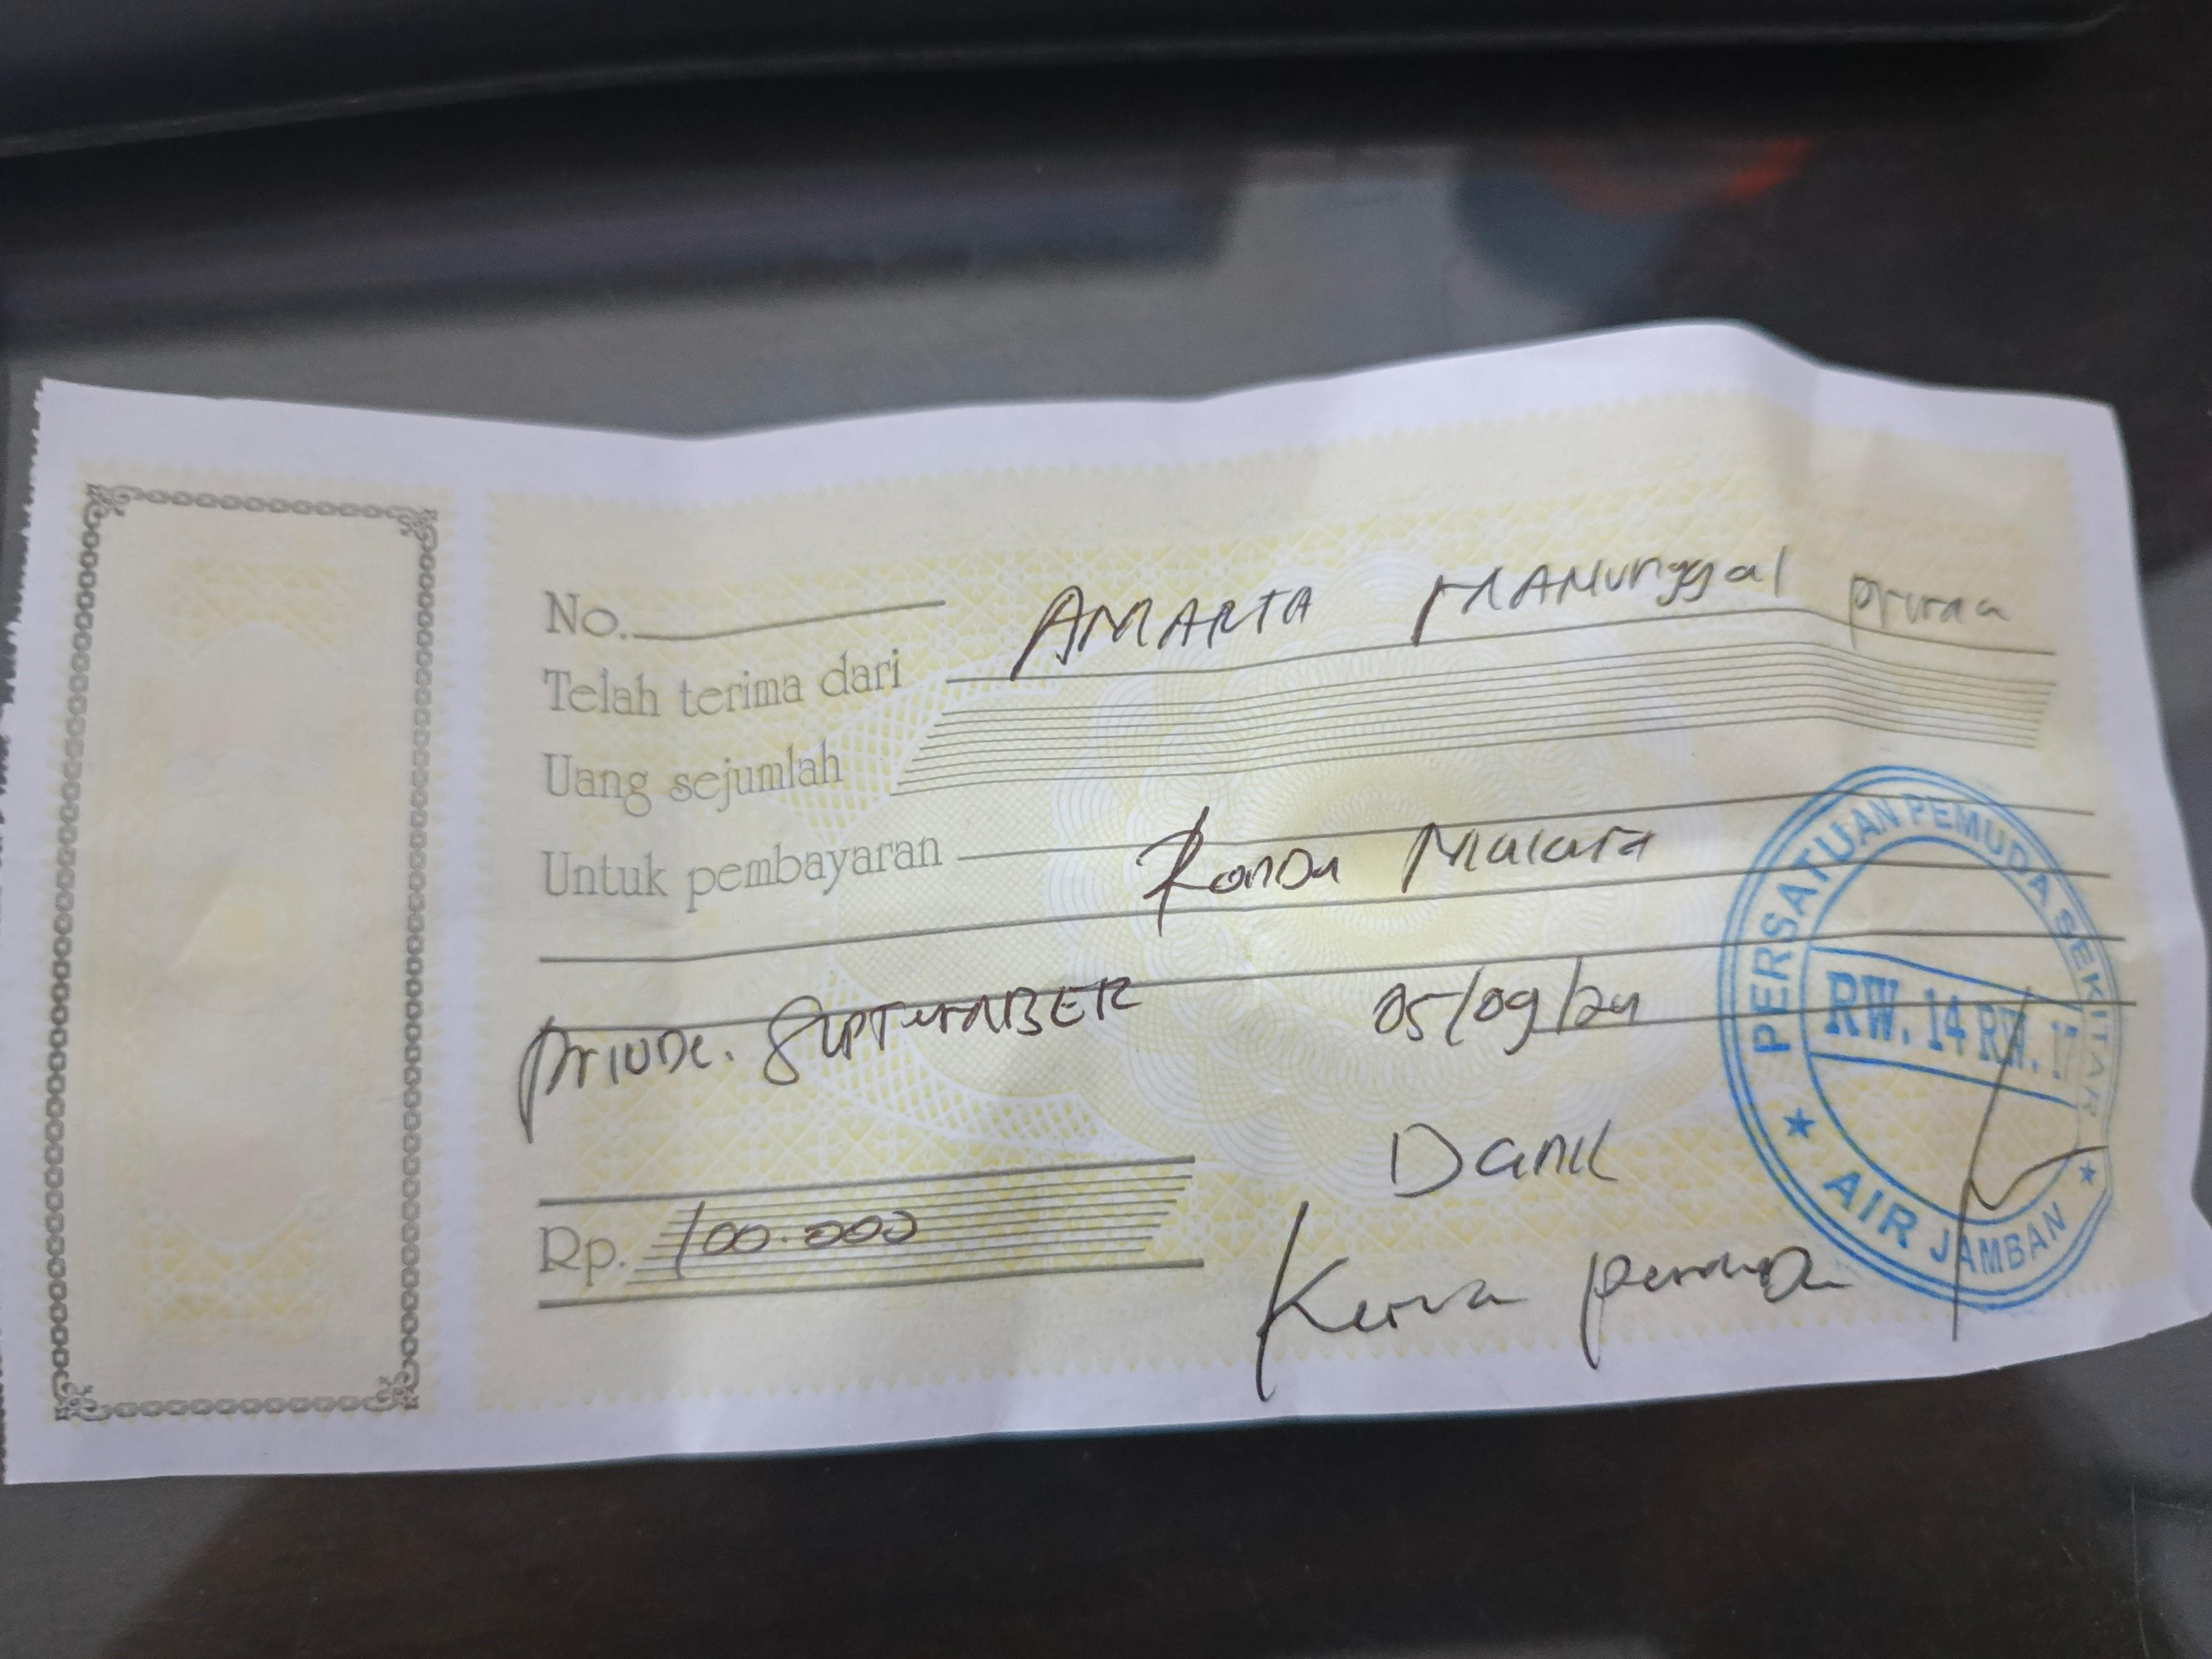 No.
Telah terima dari AMARTA MANunggal
Uang sejumlah
Untuk pembayaran Ronda Malam
Priode. SEPTEMBER 05/09/24
Danil
Rp. 100.000
Ketua pemuda
PERSATUAN PEMUDA SEKITAR
RW. 14 RW. 17
AIR JAMBAN